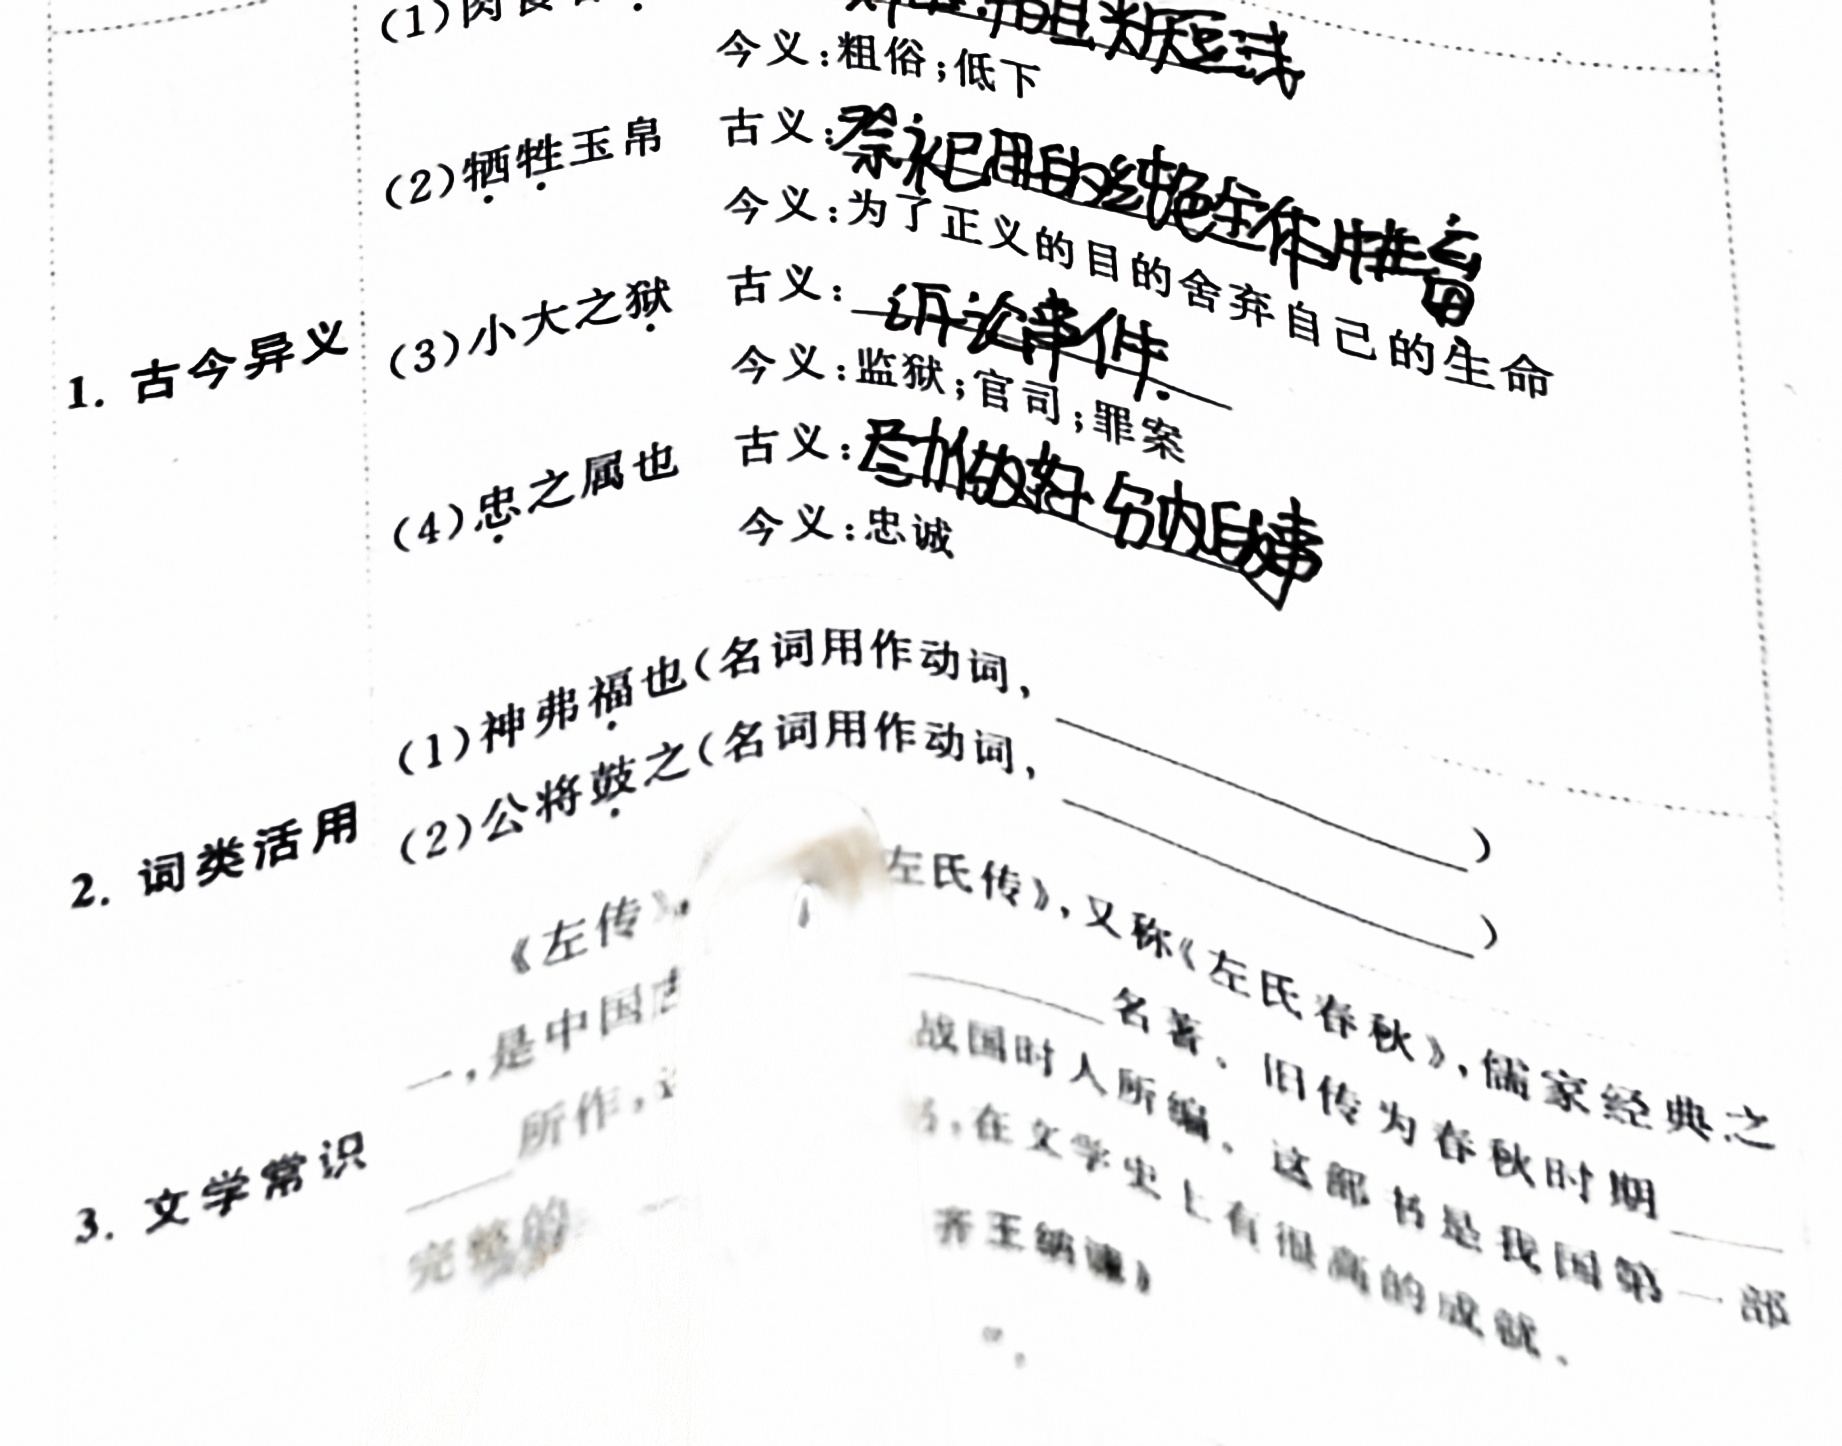 (1)肉食
今义:粗俗;低下
(2)牺牲玉帛 古义:祭祀用的纯色全体牲畜
今义:为了正义的目的舍弃自己的生命
1. 古今异义
(3)小大之狱 古义:诉讼事件.
今义:监狱;官司;罪案
(4)忠之属也 古义:尽力做好分内的事
今义:忠诚
(1)神弗福也(名词用作动词,)
2. 词类活用
(2)公将鼓之(名词用作动词,)
《左传》, 左氏传》,又称《左氏春秋》,儒家经典之
一,是中国古 名著。旧传为春秋时期
所作, 战国时人所编。这部书是我国第一部
3. 文学常识
完整的 ,在文学史上有很高的成就。
齐王纳谏》